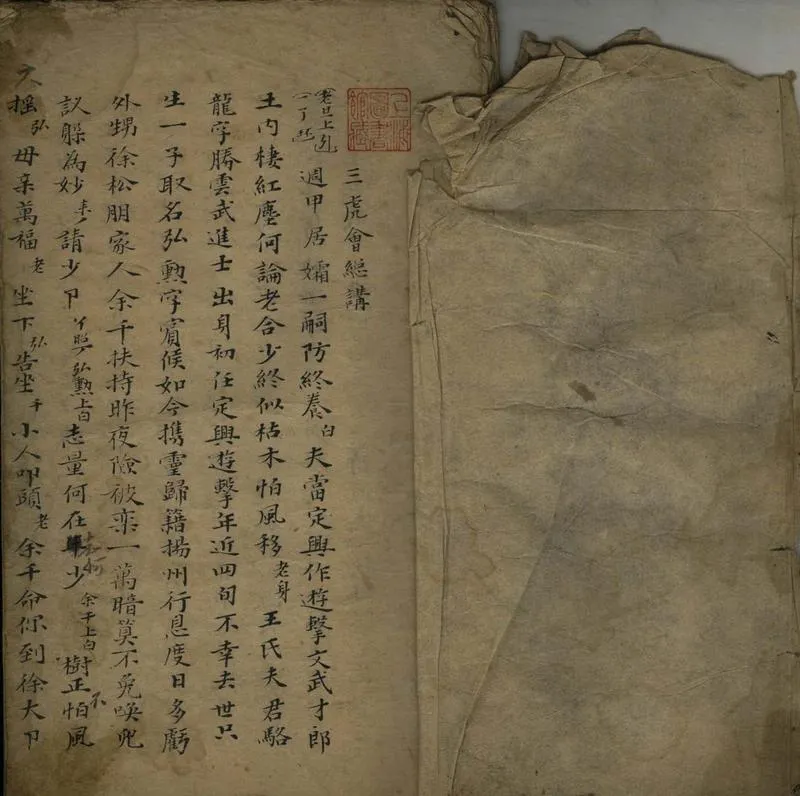 上海圖書館藏
三虎會總講
老旦上引 週甲居孀一嗣防終養 白 夫當定興作遊擊文武才郎
土内棲紅塵何論老合少終似枯木怕風移 老身王氏夫君駱
龍字勝雲武進士出身初任定興遊擊年近四旬不幸去世只
生一子取名弘勲字賓侯如今携靈歸籍揚州行息度日多虧
外甥徐松朋家人余千扶持昨夜險被栾一萬暗莫不免喚
議躱為妙 来 請少卩 弘勲上白 志量何在少 余千上白 樹正不怕風
大摇 弘 母亲萬福 老 坐下 弘 告坐 千 小人叩頭 老 余千命你到徐大卩